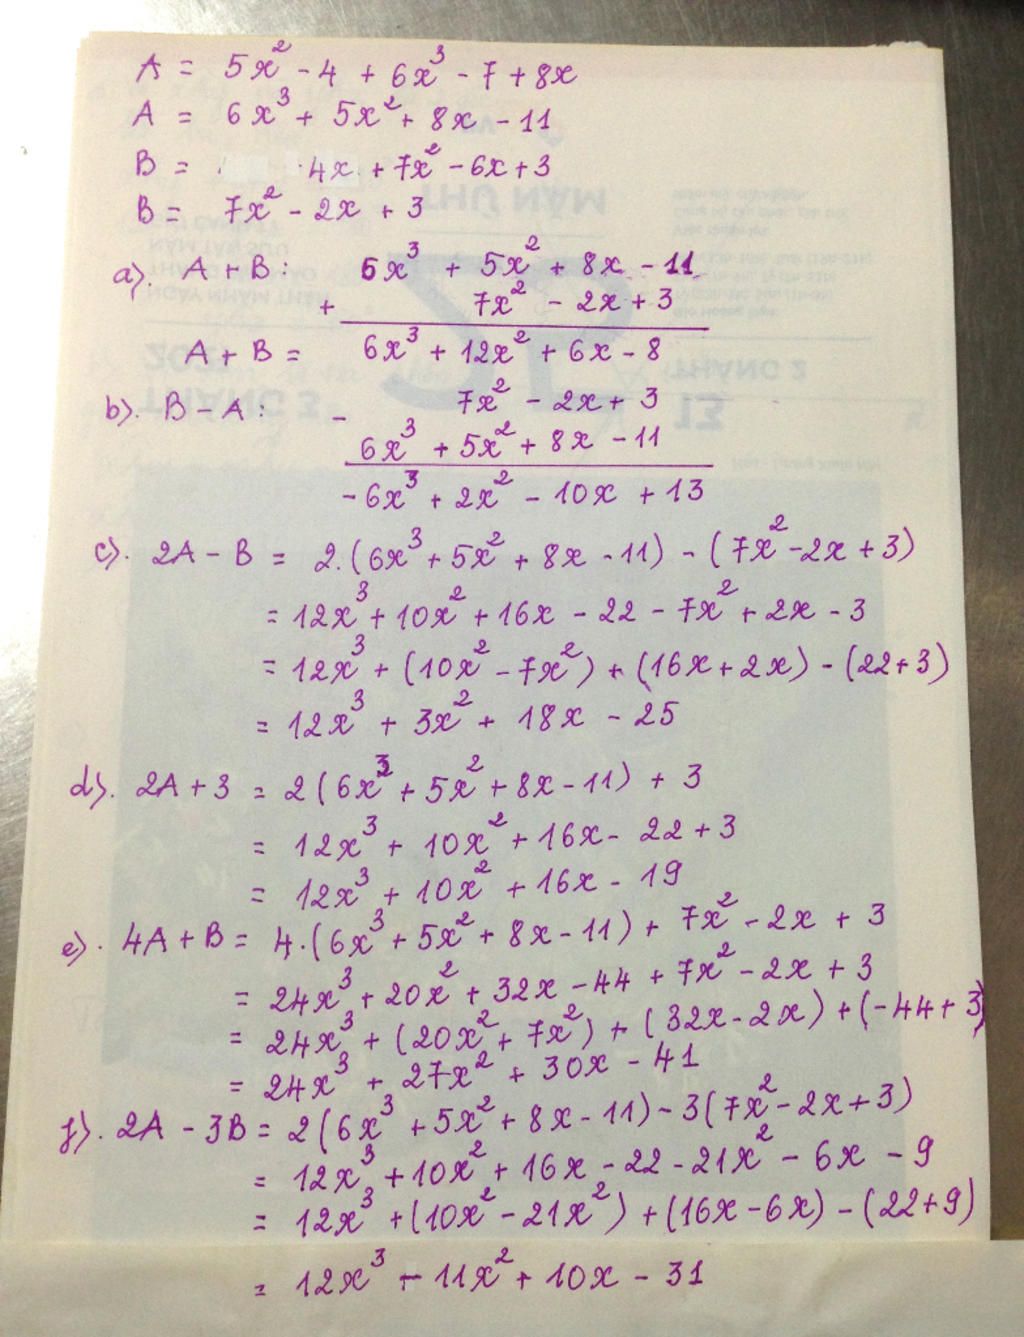 A = 5x² - 4 + 6x³ - 7 + 8x
A = 6x³ + 5x² + 8x - 11
B = 4x + 7x² - 6x + 3
B = 7x² - 2x + 3
a). A + B : 6x³ + 5x² + 8x - 11
+ 7x² - 2x + 3
A + B = 6x³ + 12x² + 6x - 8
b). B - A : - 7x² - 2x + 3
6x³ + 5x² + 8x - 11
- 6x³ + 2x² - 10x + 13
c). 2A - B = 2.(6x³ + 5x² + 8x - 11) - (7x² - 2x + 3)
= 12x³ + 10x² + 16x - 22 - 7x² + 2x - 3
= 12x³ + (10x² - 7x²) + (16x + 2x) - (22+3)
= 12x³ + 3x² + 18x - 25
d). 2A + 3 = 2(6x³ + 5x² + 8x - 11) + 3
= 12x³ + 10x² + 16x - 22 + 3
= 12x³ + 10x² + 16x - 19
e). 4A + B = 4.(6x³ + 5x² + 8x - 11) + 7x² - 2x + 3
= 24x³ + 20x² + 32x - 44 + 7x² - 2x + 3
= 24x³ + (20x² + 7x²) + (32x - 2x) + (-44 + 3)
= 24x³ + 27x² + 30x - 41
f). 2A - 3B = 2(6x³ + 5x² + 8x - 11) - 3(7x² - 2x + 3)
= 12x³ + 10x² + 16x - 22 - 21x² - 6x - 9
= 12x³ + (10x² - 21x²) + (16x - 6x) - (22+9)
= 12x³ - 11x² + 10x - 31